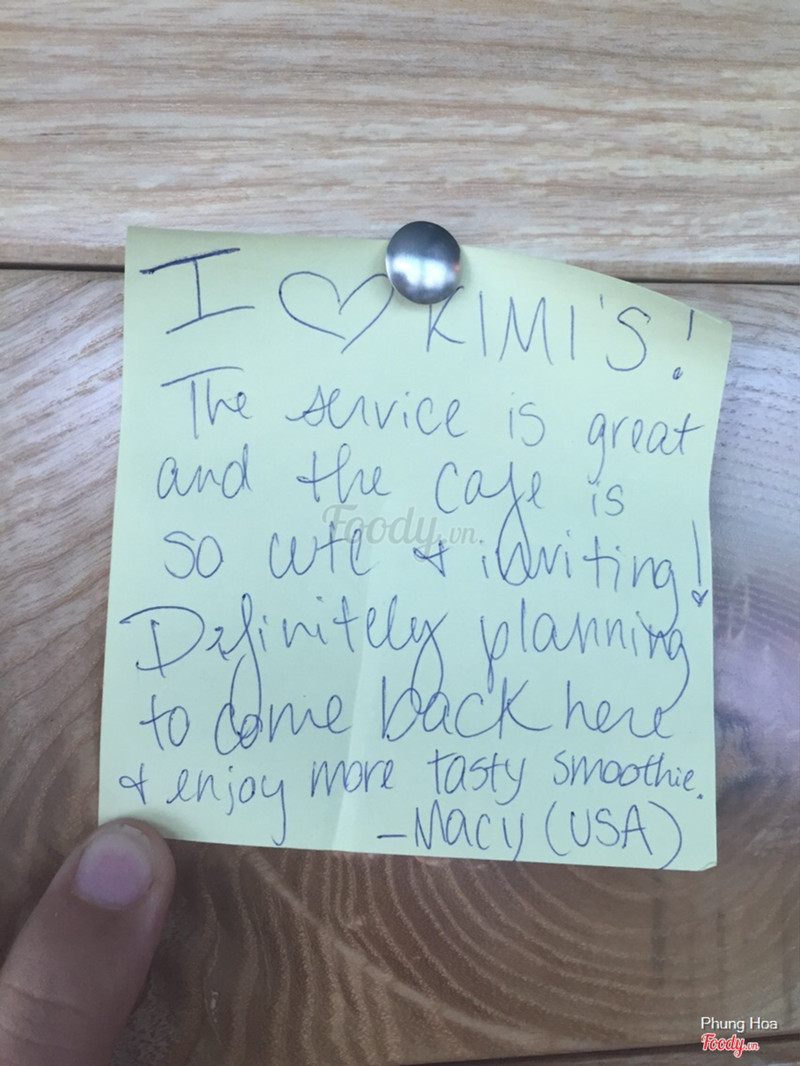 I ♡ KIMI'S!
The service is great
and the cafe is
so cute & inviting!
Definitely planning
to come back here
& enjoy more tasty smoothie.
-Macy (USA)
Foody.vn
Phung Hoa
Foody.vn